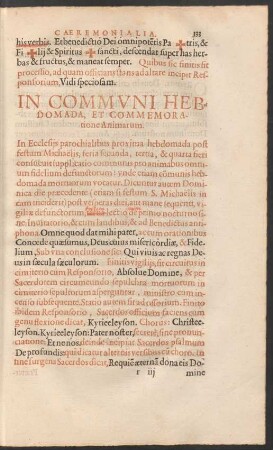 CAEREMONIALIA. 133
his verbis. Et benedictio Dei omnipotẽtis Pa✠tris, &
Fi✠lij & Spiritus ✠ sancti, descendat super has her-
bas & fructus, & maneat semper. Quibus sic finitis fit
processio, ad quam officiantis ad altare incipit Res-
ponsorium, Vidi speciosam.
IN COMMVNI HEB-
DOMADA, ET COMMEMORA-
tione Animarum.
In Ecclesijs parochialibus proxima hebdomada post
festum Michaelis, feria secunda, tertia, & quarta fieri
consueuit suffragium pro animabus omnium
fidelium defunctorum: vnde etiam cõmunis heb-
domada mortuorum vocatur. Dicuntur autem Domi-
nica die præcedente
incidit) post vesperas diei, aut mane sequenti, vi-
giliæ defunctorum
ne. Inuitatorium, & cum laudibus, & ad Benedictus anti-
phona. Omne quod dat mihi pater, ac cum orationibus
Concede quæsumus, Deus cuius misericordiæ, & Fide-
lium, Sub vna conclusione sic: Qui viuis ac regnas De-
us in sæcula sæculorum. Finitis vigilijs, fit circuitus in
cimiterio cum Responsorio, Absolue Domine, & per
Sacerdotem circumeundo sepulchra mortuorum in
cimiterio sepultorum asperguntur, ministro cum in-
censo subsequente. Statio autem fit
ibidem Responsorio, Sacerdos officium faciens cum
genuflexione dicat, Kyrieeleyson. Chorus: Christee-
leyson. Kyrieeleyson: Pater noster, secretè, sine pronun-
ciatione. Et ne nos, deinde incipiat Sacerdos psalmum
De profundis: quo dicatur alternis versibus cũ choro. In
fine surgens Sacerdos dicat, Requiẽ æternã dona eis Do-
r iij mine